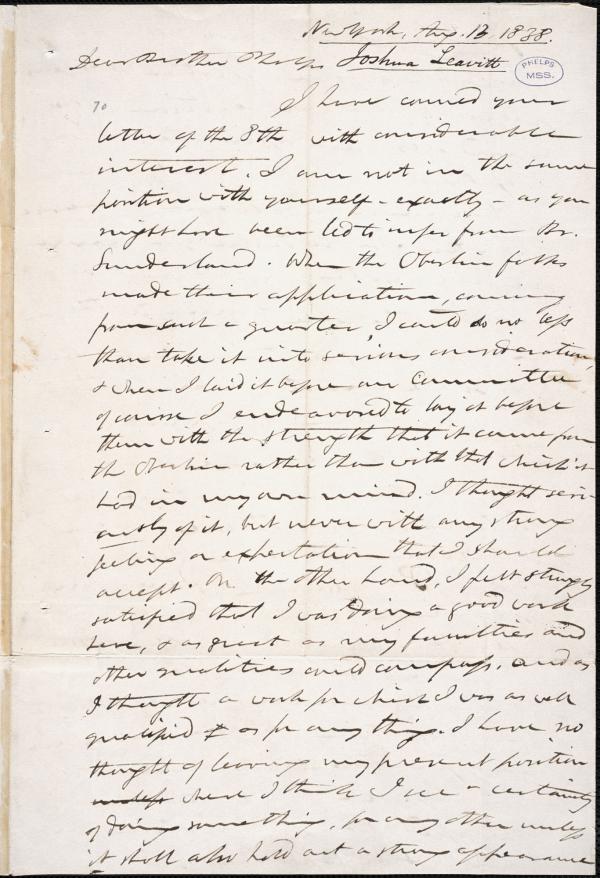 New York, Aug. 13 1838.
Dear Brother Phelps Joshua Leavitt
PHELPS
MSS.
70
I have conned your
letter of the 8th with considerable
interest. I am not in the same
position with yourself - exactly - as you
might have been led to infer from Br.
Sunderland. When the Oberlin folks
made their application, coming
from such a quarter, I could do no less
than take it into serious consideration,
& when I laid it before our Committee
of course I endeavored to lay it before
them with the strength that it came from
the Oberlin rather than with that which it
had in my own mind. I thought seri-
ously of it, but never with any strong
feeling or expectation that I should
accept. On the other hand, I felt strongly
satisfied that I was doing a good work
here, & as great as my faculties and
other qualities could compass, and as
I thought a work for which I was as well
qualified as for any thing. I have no
thought of leaving my present position
where I think I see a certainty
of doing something, for any other unless
it shall also hold out a strong appearance